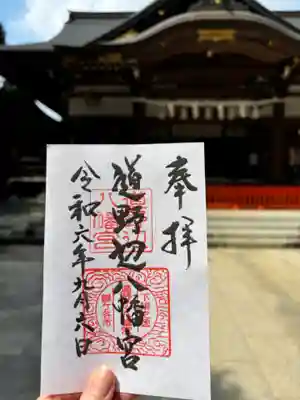 奉拝
道野辺八幡宮
令和六年九月六日